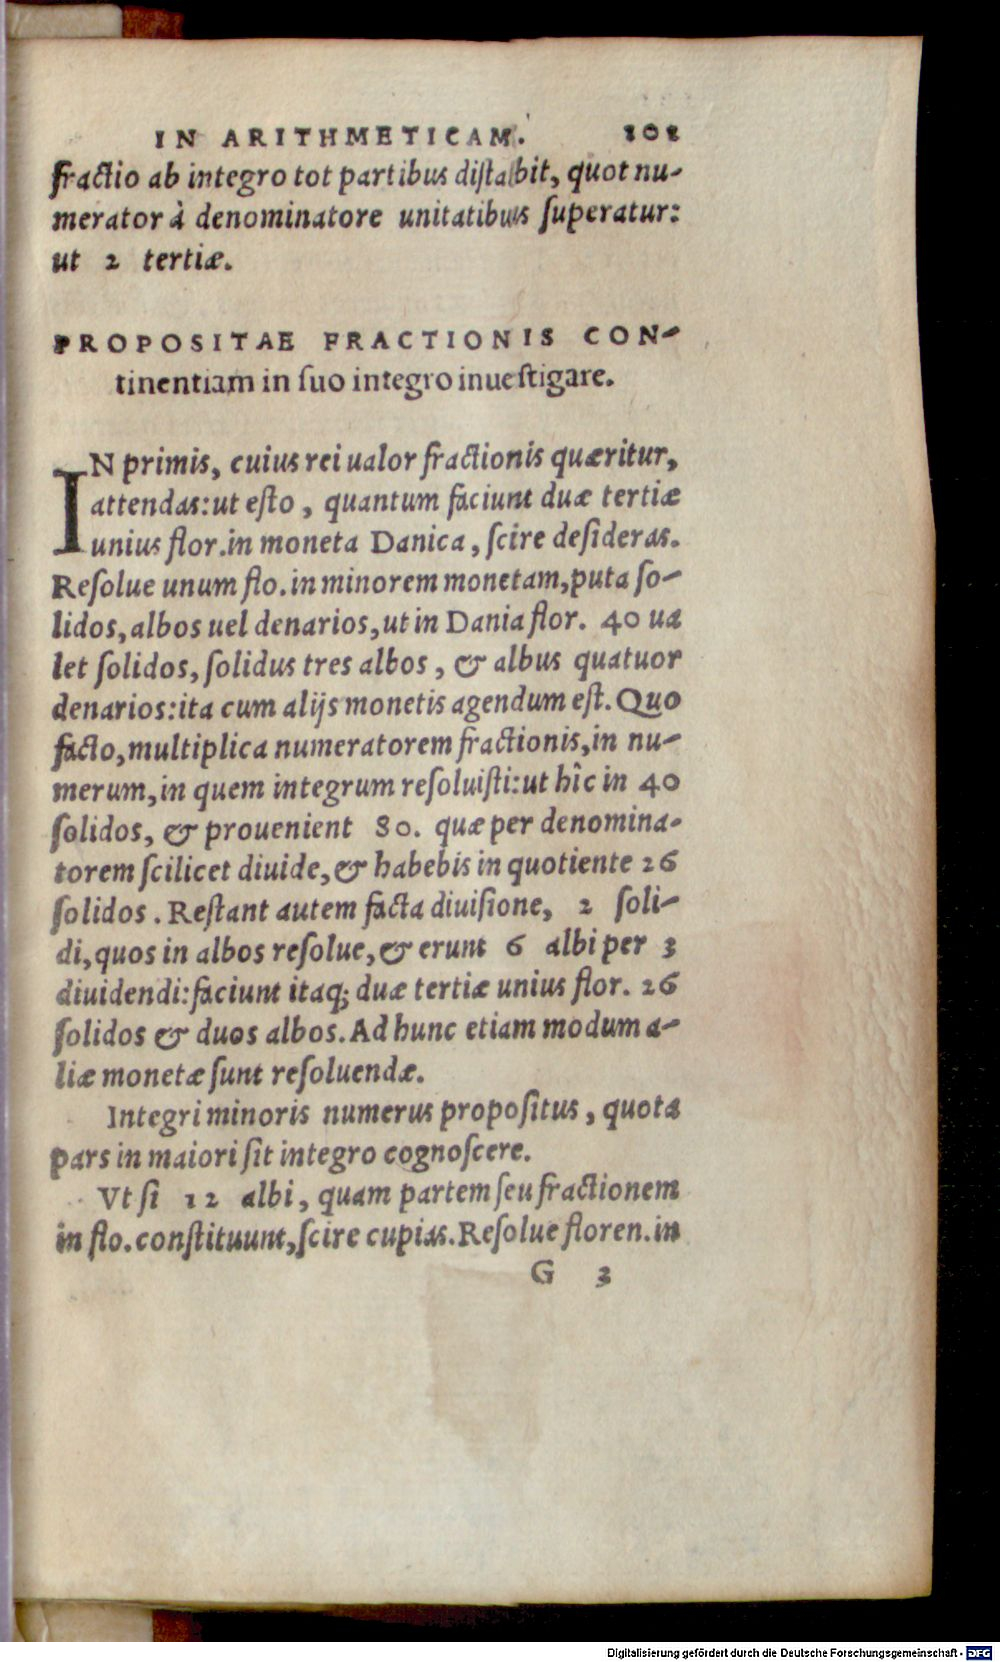 IN ARITHMETICAM. 101
fractio ab integro tot partibus distabit, quot nu-
merator à denominatore unitatibus superatur:
ut 2 tertiæ.
PROPOSITAE FRACTIONIS CON-
tinentiam in suo integro inuestigare.
IN primis, cuius rei ualor fractionis quæritur,
attendas: ut esto, quantum faciunt duæ tertiæ
unius flor. in moneta Danica, scire desideras.
Resolue unum flo. in minorem monetam, puta so-
lidos, albos uel denarios, ut in Dania flor. 40 ua
let solidos, solidus tres albos, & albus quatuor
denarios: ita cum alijs monetis agendum est. Quo
facto, multiplica numeratorem fractionis, in nu-
merum, in quem integrum resoluisti: ut hîc in 40
solidos, & prouenient 80. quæ per denomina-
torem scilicet diuide, & habebis in quotiente 26
solidos. Restant autem facta diuisione, 2 soli-
di, quos in albos resolue, & erunt 6 albi per 3
diuidendi: faciunt itaq; duæ tertiæ unius flor. 26
solidos & duos albos. Ad hunc etiam modum a-
liæ monetæ sunt resoluendæ.
Integri minoris numerus propositus, quota
pars in maiori sit integro cognoscere.
Vt si 12 albi, quam partem seu fractionem
in flo. constituunt, scire cupias. Resolue floren. in
G 3
Digitalisierung gefördert durch die Deutsche Forschungsgemeinschaft - DFG